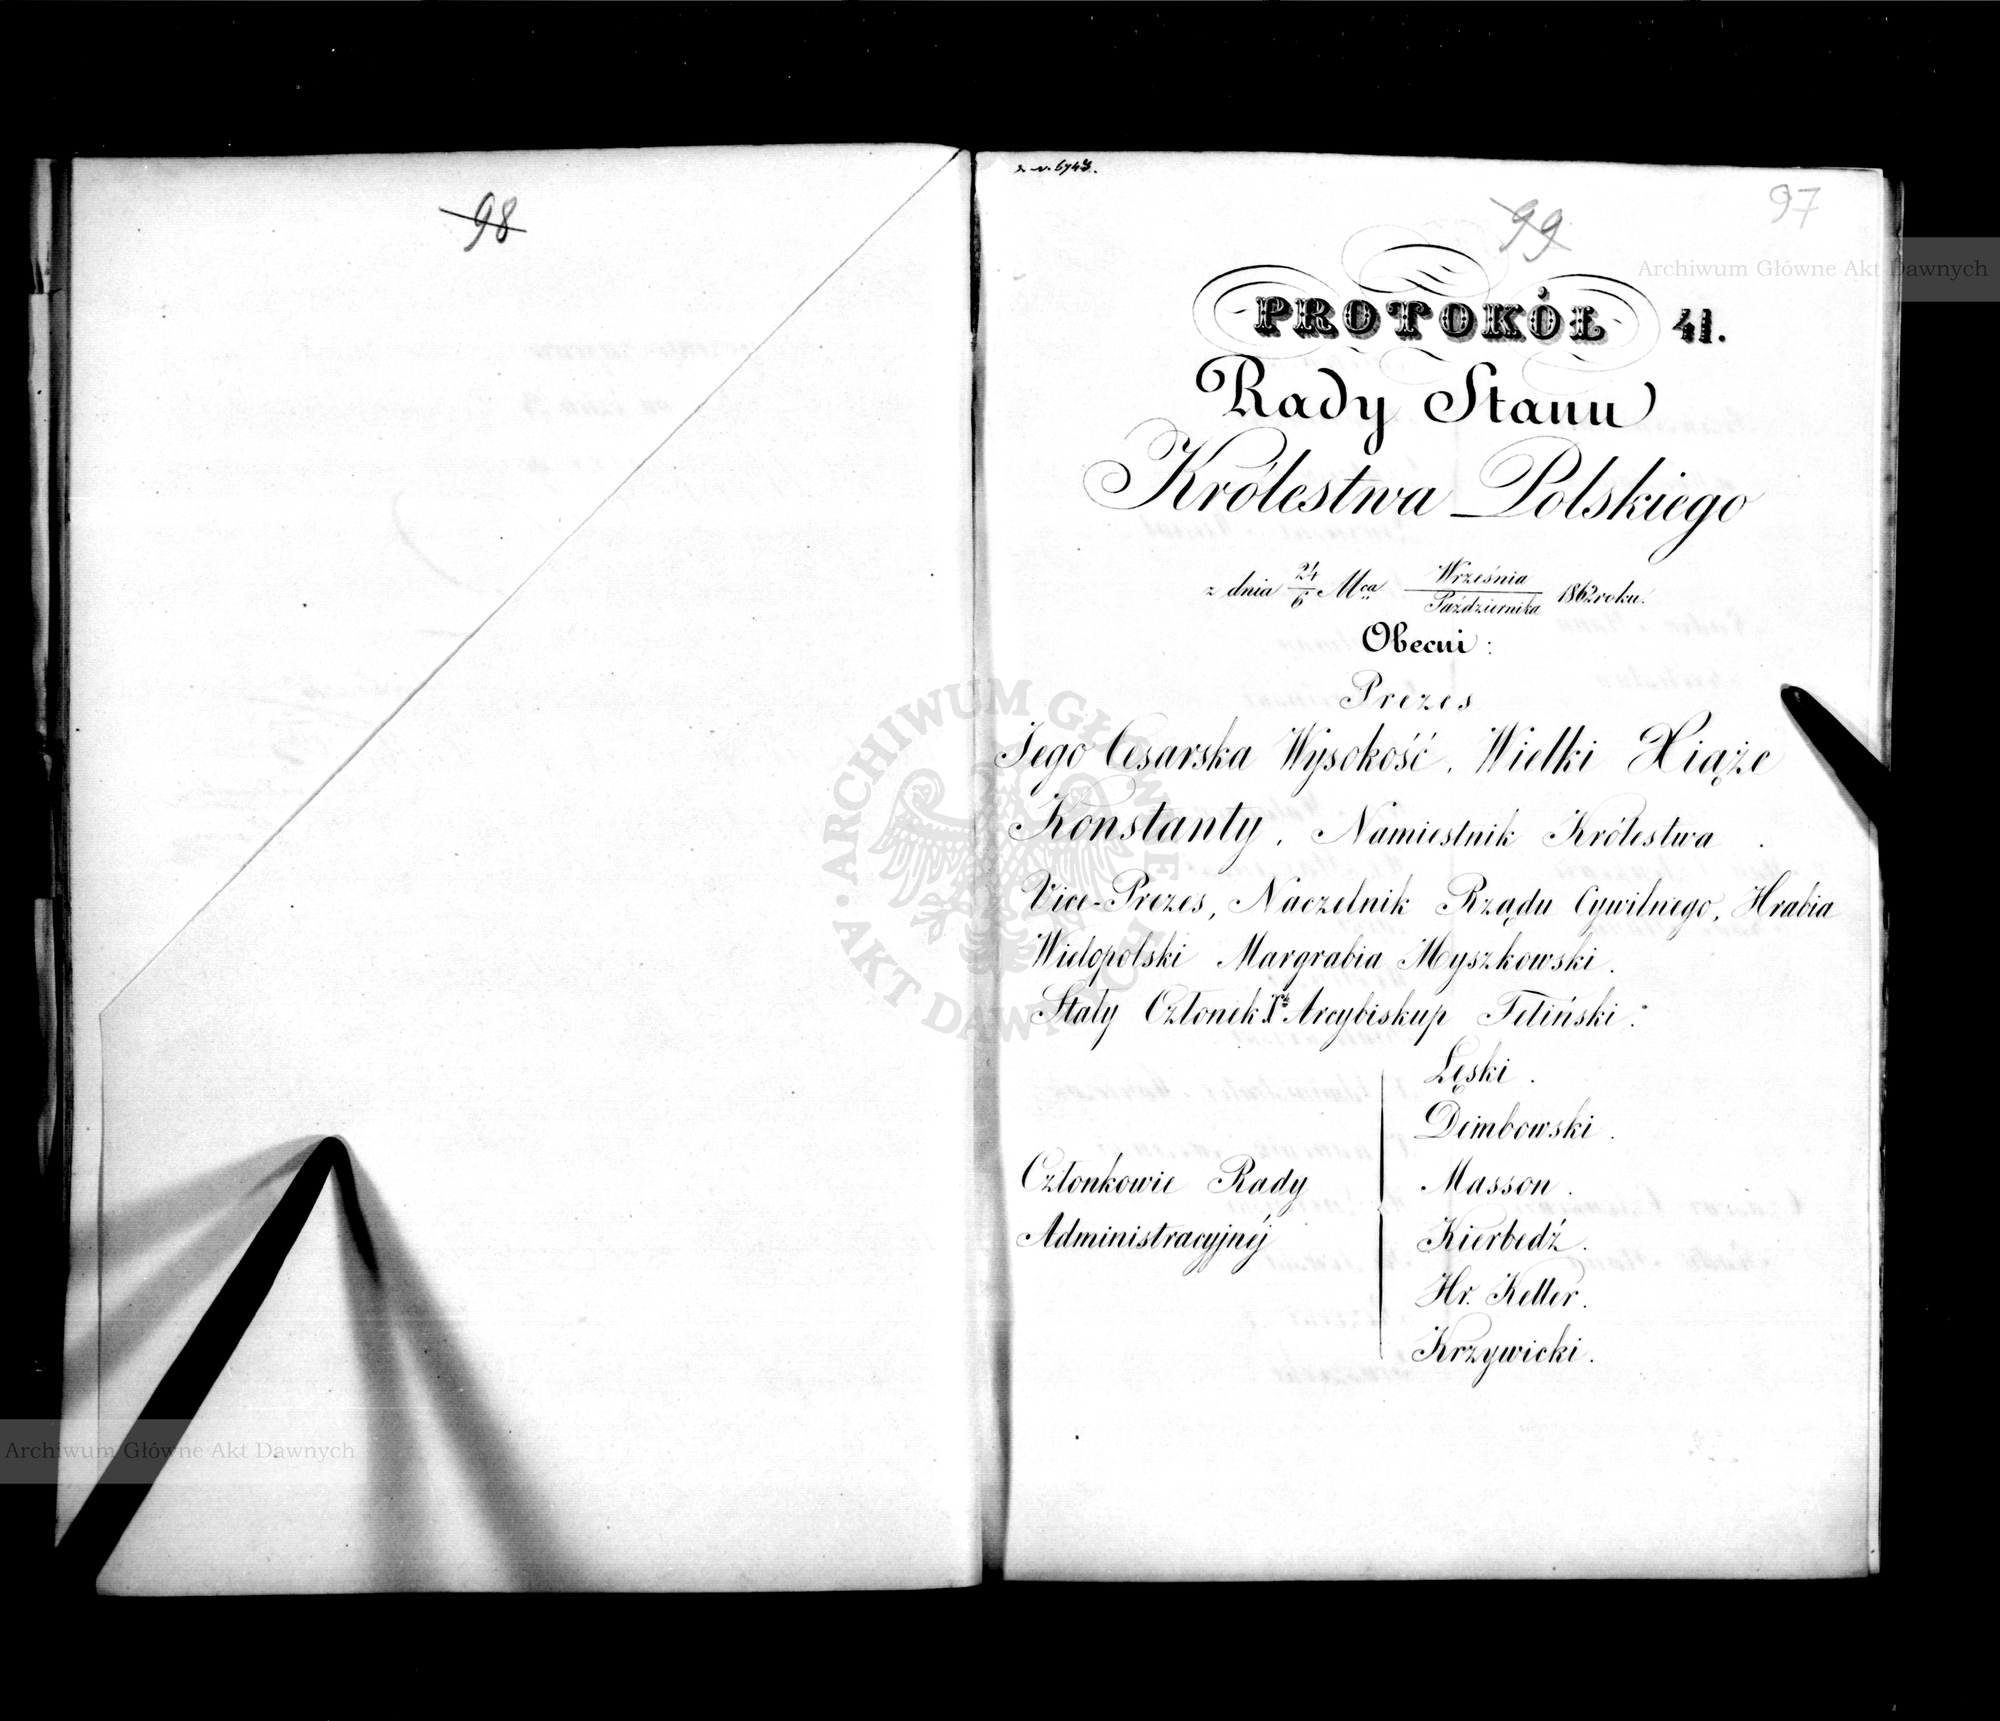 98
97
99
PROTOKÓŁ 41.
Rady Stanu
Królestwa Polskiego
z dnia 24/6 Mca Września/Października 1862 roku.
Obecni:
Prezes
Jego Cesarska Wysokość, Wielki Xiąże
Konstanty, Namiestnik Królestwa.
Vice-Prezes, Naczelnik Rządu Cywilnego, Hrabia
Wielopolski Margrabia Myszkowski.
Stały Członek X. Arcybiskup Feliński.
Łęski.
Dembowski.
Członkowie Rady Masson.
Administracyjnéj Kierbedź.
Hr. Keller.
Krzywicki.
Archiwum Główne Akt Dawnych
ARCHIWUM GŁÓWNE AKT DAWNYCH
Archiwum Główne Akt Dawnych